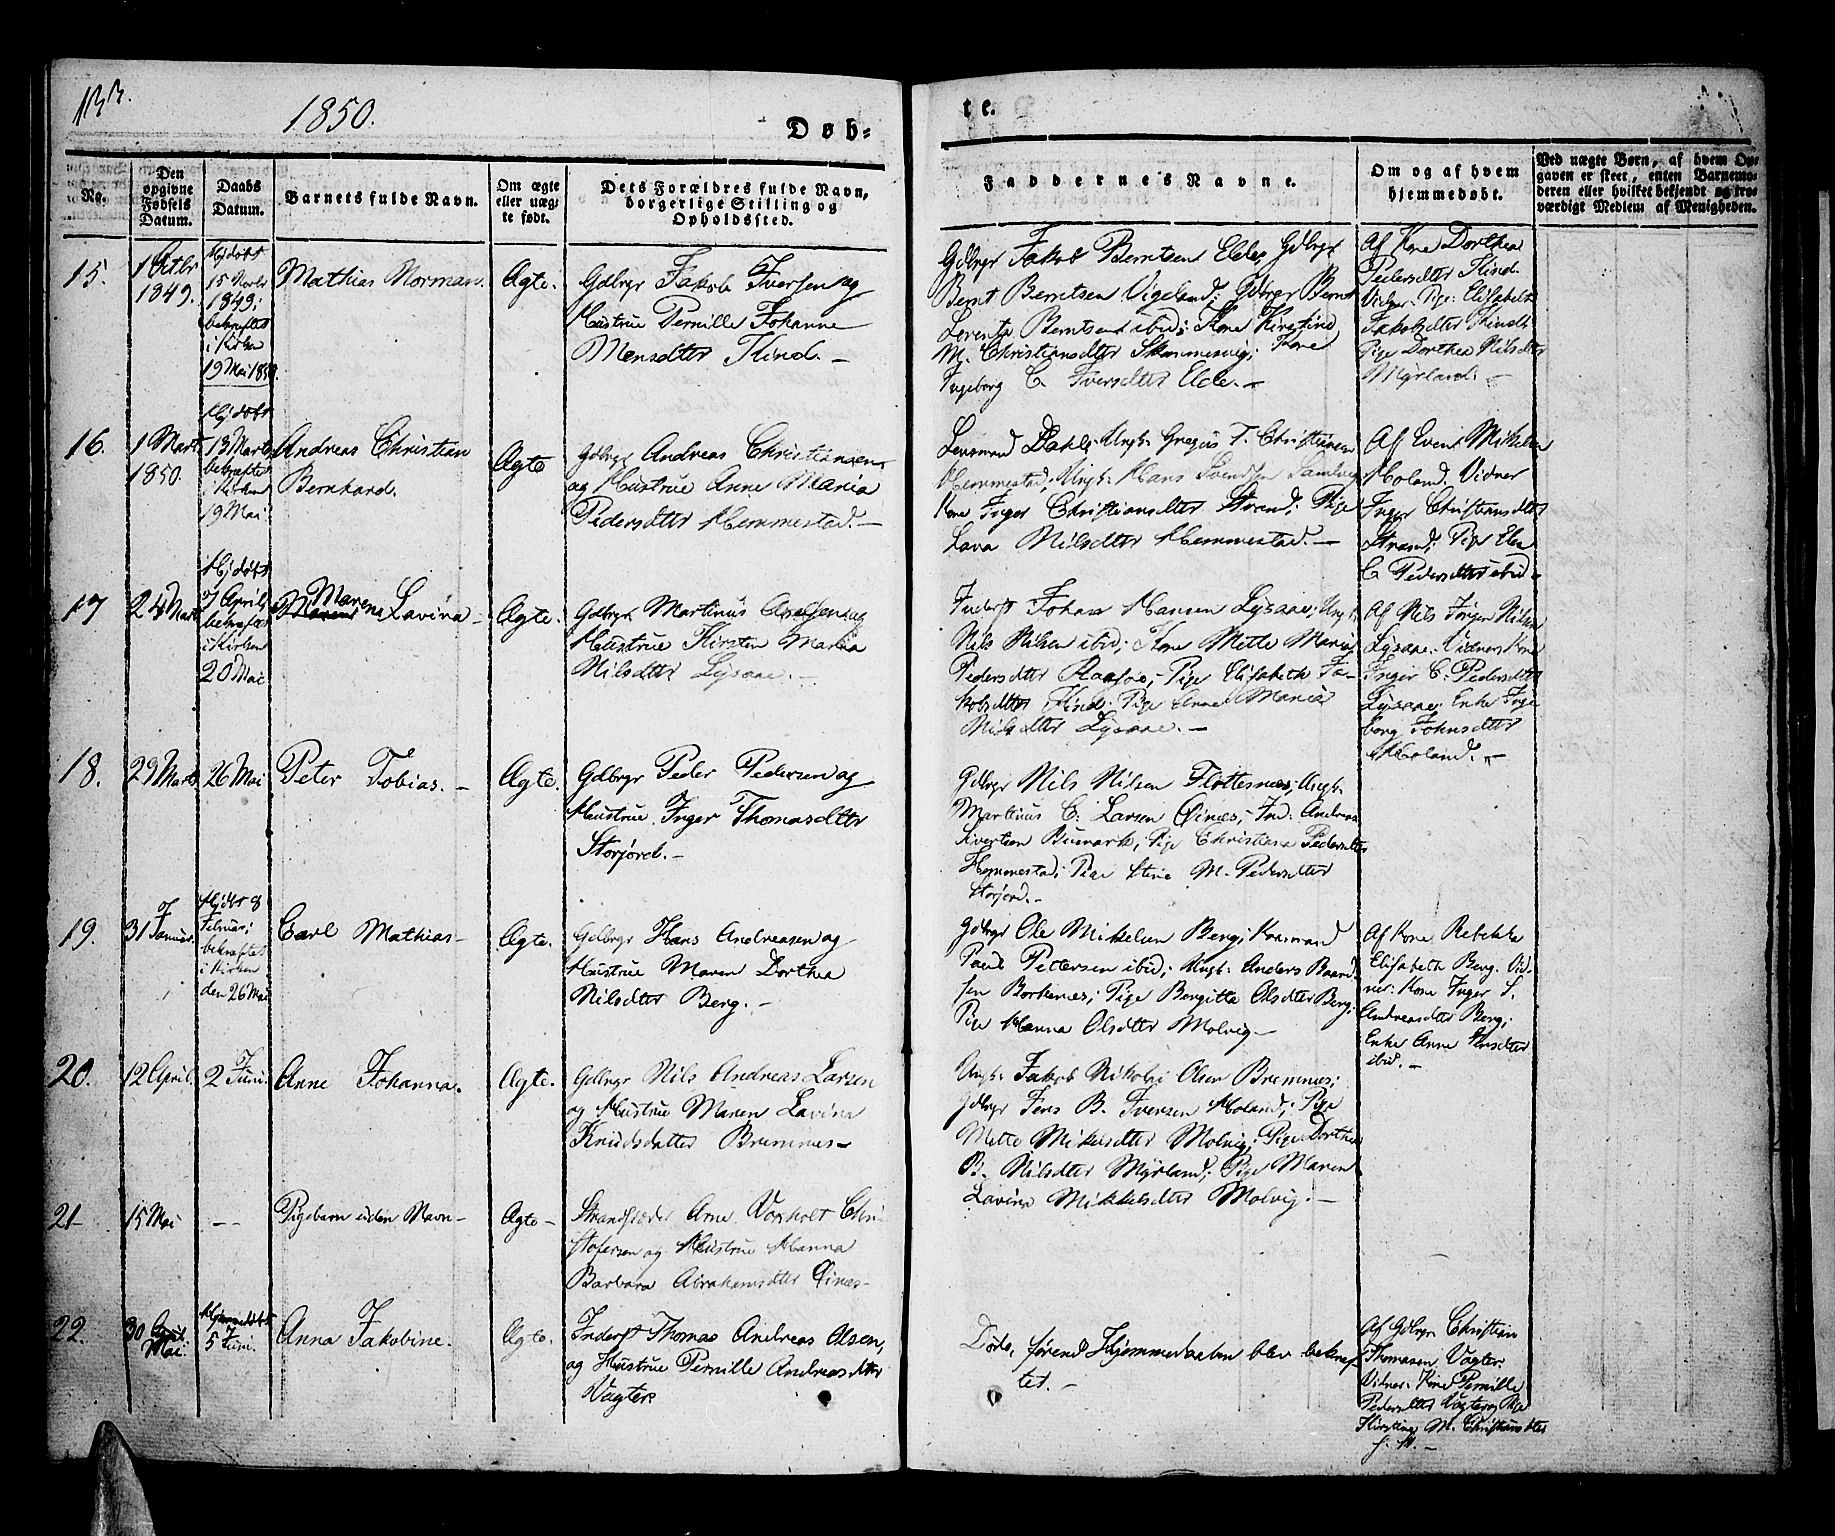 1850.
Døb-
te.
No.
Den
opgivne
Fødsels
Datum.
Daabs
Datum.
Barnets fulde Navn.
Om ægte
eller uæg-
te født.
Dets Forældres fulde Navn,
borgerlige Stilling og
Opholdssted.
Faddernes Navne.
Om og af hvem
hjemmedøbt.
Ved uægte Børn, af hvem Op-
gaven er skeet, enten Barnemo-
deren eller hvilket bekjendt og tro-
værdigt Medlem af Menigheden.
15.
1 Octbr
1849.
Hjdøbt
15 Novbr
1849;
bekræftet
i Kirken
19 Mai 1850.
Mathias Norman.
Ægte.
Gdbrgr Jakob Iversen og
Hustrue Pernille Johanne
Monsdtter Kind. —
Gdbrgr Jakob Berntsen Elde; Gdbrgr
Bernt Berntsen Vigeland; Gdbrgr Bernt
Lorents Berntsen ibid; Kone Kirstine
M. Christiansdtter Skommesvig; Kone
Ingeborg C. Iversdtter Elde. —
Af Kone Dorthea
Pedersdtter Kind.
Vidner: Pige Elisabeth
Jakobsdtter Kind;
Pige Dorthea Nilsdtter
Myrland. —
16.
1 Marts
1850.
Hjdøbt
13 Marts
bekræftet
i Kirken
19 Mai
Andreas Christian
Bernhard.
Ægte
Gdbrgr Andreas Christiansen
og Hustrue Anne Maria
Pedersdtter Hemmestad. —
Lensmand Dahl; Ungk: Gregus T. Christiansen
Hemmestad; Ungk: Hans Svendsen
Kone Inger Christiansdtter Strand; Pige
Lava Nilsdtter Hemmestad. —
Af Evert Mikelsen
Moland. Vidner
Inger Christiansdtter
Strand; Pige Elen
C. Pedersdtter ibid —
17
24 Marts
Hjdøbt
7 April;
bekræftet
i Kirken
20 Mai
Marena
Lavina —
Ægte.
Gdbrgr Martinus og
Hustrue Kirsten Maria
Nilsdtter Lysaae. —
Inderst Johan Hansen Lysaae; Ungk:
Nils Nilsen ibid; Kone Mette Maria
Pedersdtter; Pige Elisabeth Ja-
kobsdtter Kind; Pige Anne Maria
Nilsdtter Lysaae. —
Af Nils Jørgen Nilsen
Lysaae. Vidner: Kone
Inger C. Pedersdtter
Lysaae; Enke Inge
borg Johnsdtter
Moland. —
18.
29 Marts
26 Mai
Peter Tobias. —
Ægte.
Gdbrgr Peder Pedersen og
Hustrue Inger Thomasdtter
Storjord. —
Gdbrgr Nils Nilsen Flottesnæs; Ungk:
Martinus C. Larsen Øinæs; Ind: Andreas
Sivertsen Bismark; Pige Christiane Pedersdtter
Hemmestad; Pige Stine M. Pedersdtter
Storjord. —
19.
31 Januar.
Hjdbt 8
Februar;
bekræftet
i Kirken
den 26 Mai
Carl Mathias —
Ægte.
Gdbrgr Hans Andreasen og
Hustrue Maren Dorthea
Nilsdtter Berg. —
Gdbrgr Ole Mikelsen Berg; Kaarmand
Povel Pettersen ibid; Ungk: Anders Baard-
sen Borkenes; Pige Bergitta Olsdtter Berg;
Pige Hanna Olsdtter Molvig —
Af Kone Rebekka
Elisabeth Berg. Vid-
ner: Kone Inger S.
Andreasdtter Berg;
Enke Anne Hansdtter
ibid. —
20.
12 April.
2 Juni.
Anne Johanna.
Ægte.
Gdbrgr Nils Andreas Larsen
og Hustrue Maren Lavina
Knudsdatter Bremnes —
Ungk: Jakob Nikolai Olsen Bremnes;
Gdbrgr Jens B. Iversen Moland; Pige
Mette Mikelsdtter Molvig; Pige Dorthea
B. Nilsdtter Myrland; Pige Maren
Lavina Mikkelsdtter Molvig. —
21
15 Mai
—
Pigebarn uden Navn —
Ægte —
Strandsidder Arne Normolt Chri
stofersen og Hustrue Hanna
Barbara Abrahamsdtter Øinæs —
22
30
Mai
Hjemmedøbt
5 Juni.
Anna Jakobine.
Ægte.
Inderst Thomas Andreas Olsen,
og Hustrue Pernille Andreasdtter
Vagter.
Døde, førend Hjemmedaaben blev bekræf
tet. —
Af Gdbrgr Christian
Thomasen Vagter.
Vidner: Kone Pernille
Pedersdtter Vagter og
Kirstine M. Christiansdtter